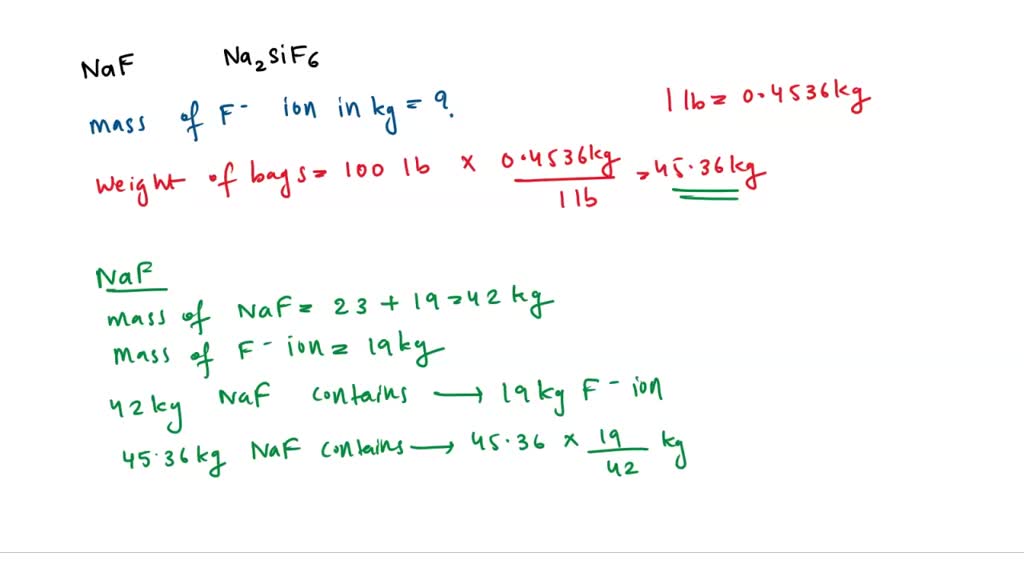 NaF Na₂SiF₆
mass of F⁻ ion in kg = ?
1 lb = 0.4536 kg
Weight of bags = 100 lb × 0.4536 kg / 1 lb = 45.36 kg
NaF
mass of NaF = 23 + 19 = 42 kg
Mass of F⁻ ion = 19 kg
42 kg NaF contains → 19 kg F⁻ ion
45.36 kg NaF contains → 45.36 × 19 / 42 kg